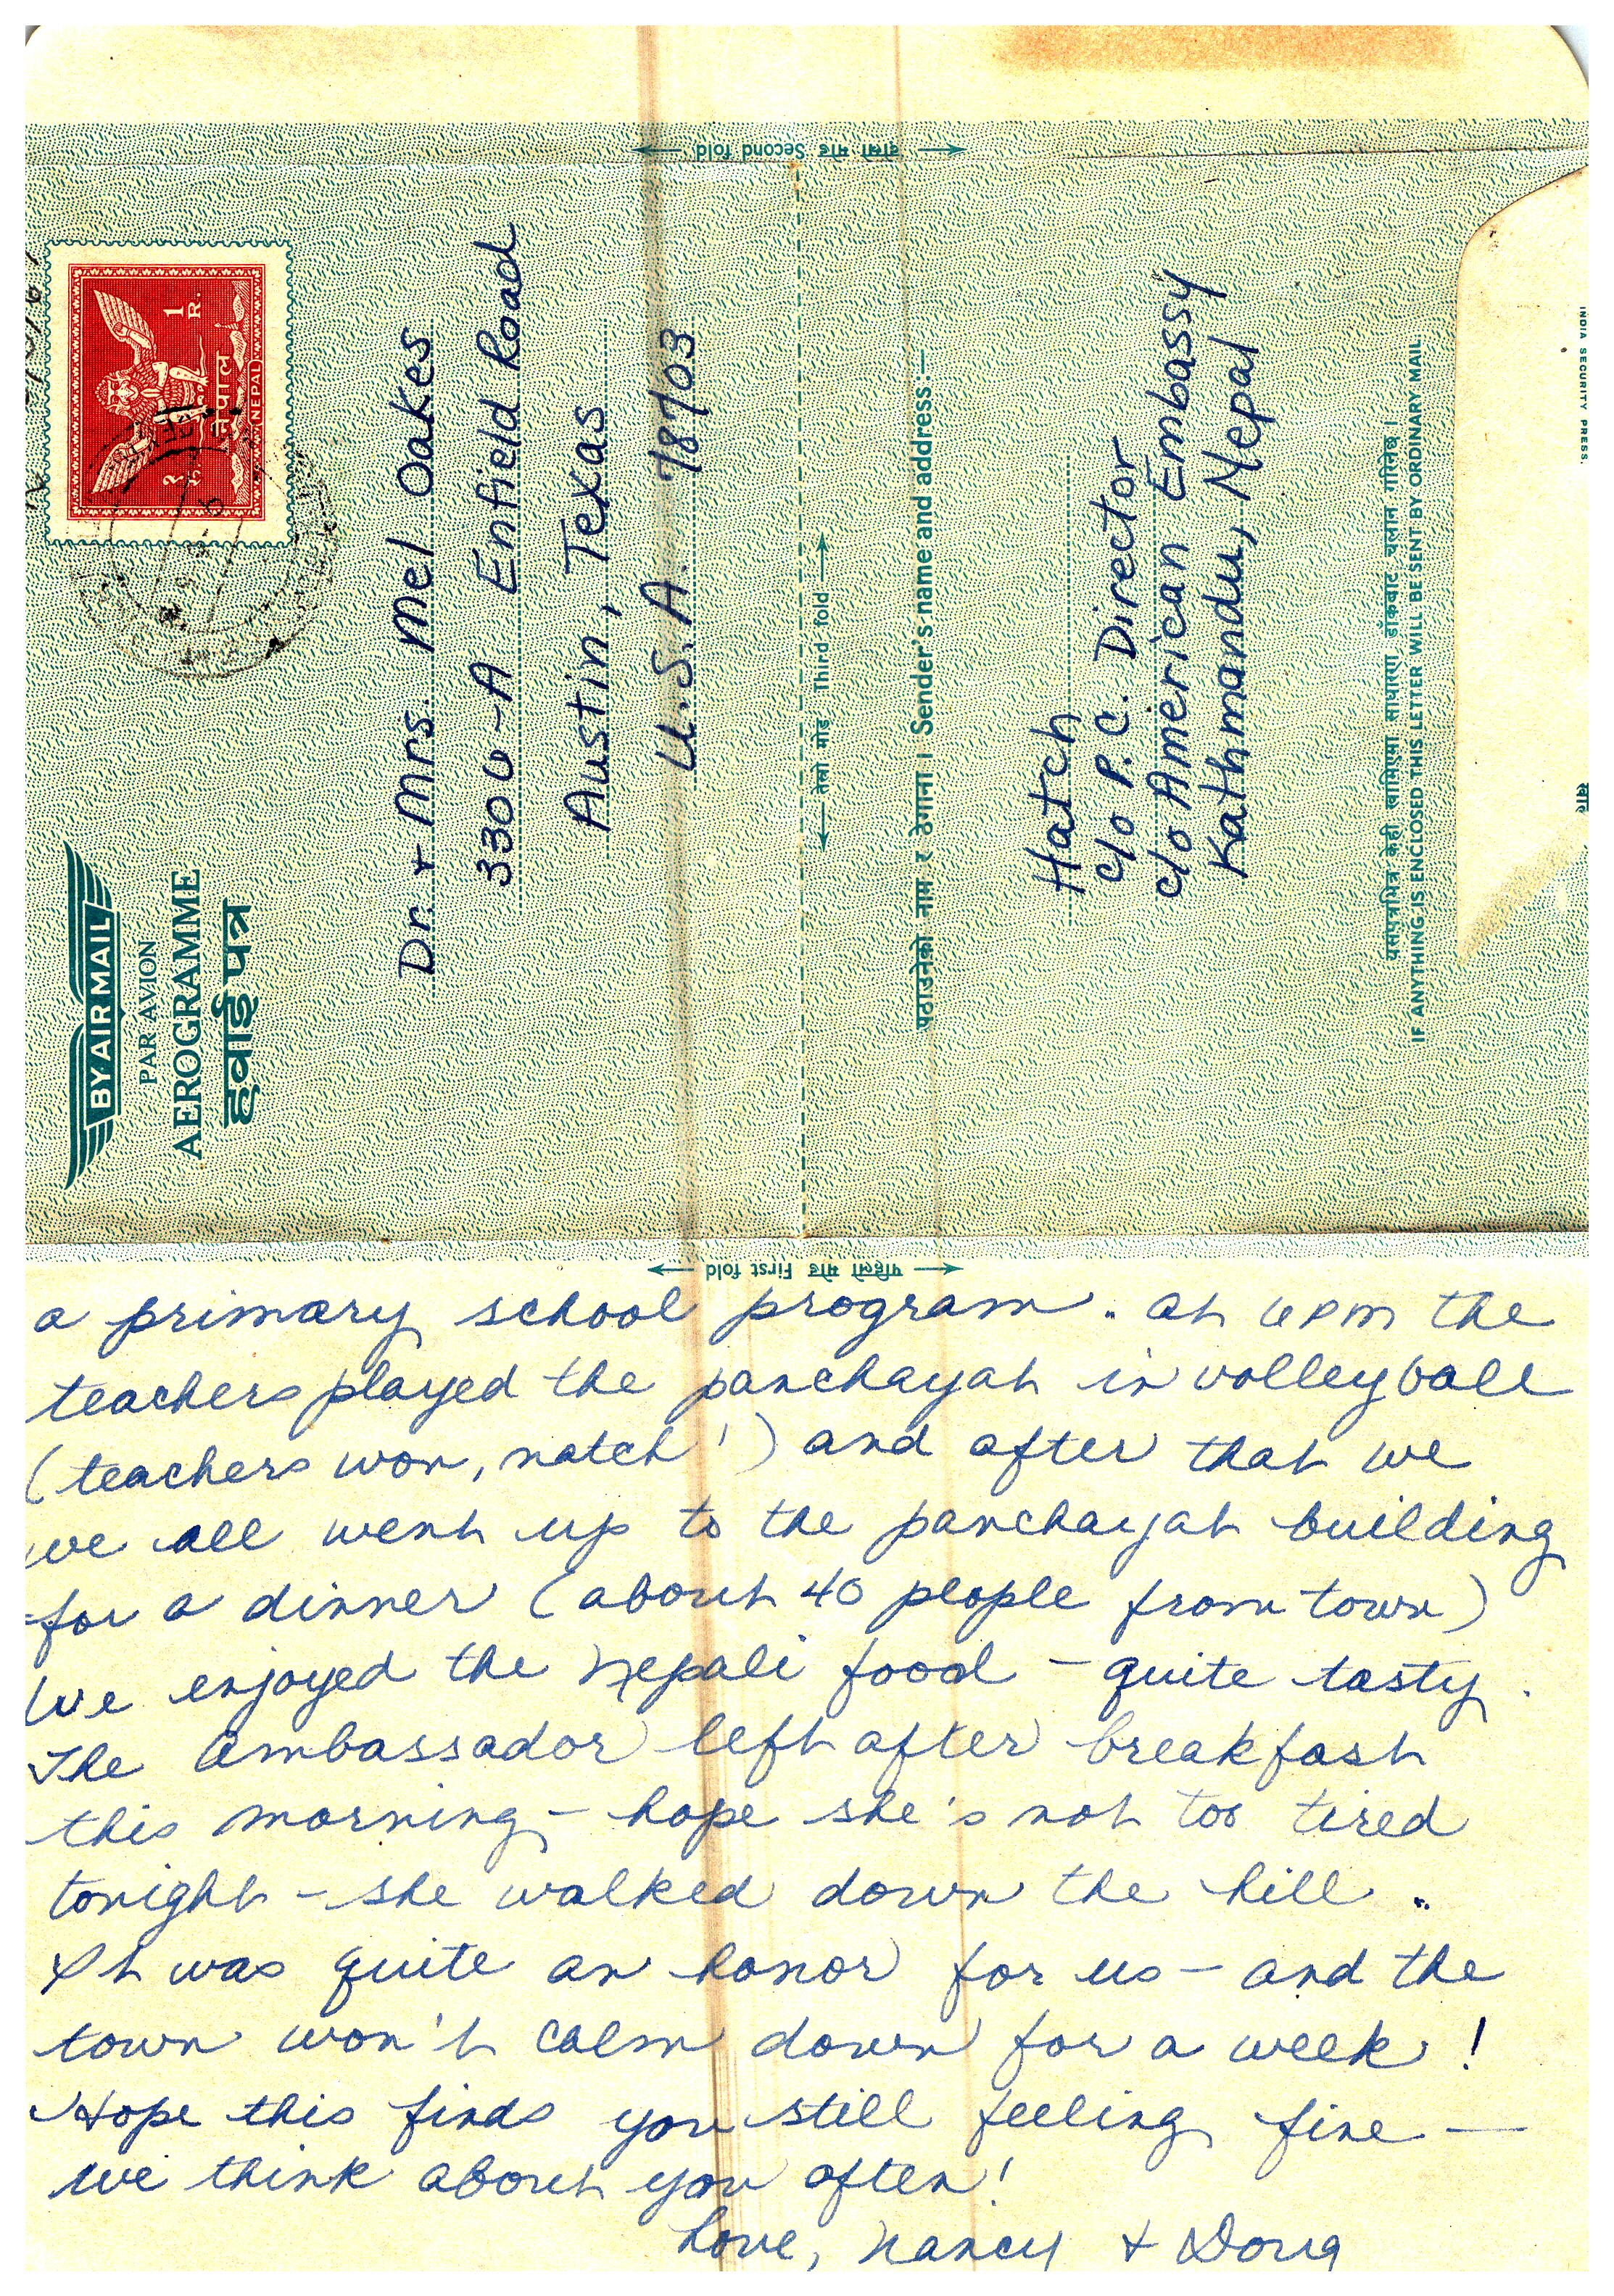 BY AIR MAIL
PAR AVION
AEROGRAMME
हवाई पत्र
१ रु.
नेपाल
NEPAL
1 R.
Dr. + Mrs. Mel Oakes
3300-A Enfield Road
Austin, Texas
U.S.A. 78703
दोस्रो मोड Second fold
तेस्रो मोड Third fold
पठाउनेको नाम र ठेगाना । Sender's name and address:—
Hatch
c/o P.C. Director
c/o American Embassy
Kathmandu, Nepal
यसपत्रभित्र केही खामिएमा साधारण डाँकबाट चलान गरिनेछ ।
IF ANYTHING IS ENCLOSED THIS LETTER WILL BE SENT BY ORDINARY MAIL
INDIA SECURITY PRESS.
पहिलो मोड First fold
a primary school program. at 4 PM the
teachers played the panchayat in volleyball
(teachers won, natch!) and after that we
we all went up to the panchayat building
for a dinner (about 40 people from town)
We enjoyed the Nepali food – quite tasty.
The Ambassador left after breakfast
this morning – hope she's not too tired
tonight – she walked down the hill.
It was quite an honor for us – and the
town won't calm down for a week!
Hope this finds you still feeling fine —
we think about you often!
Love, Nancy + Doug